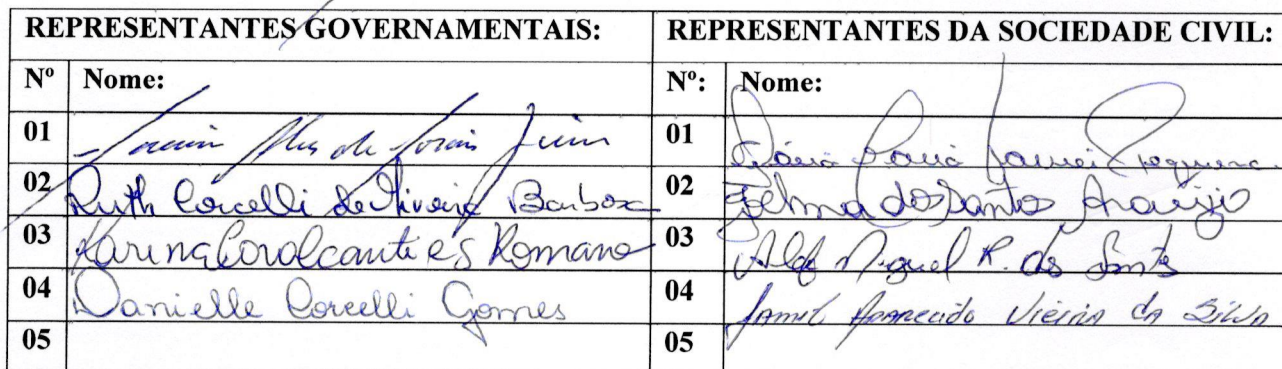 REPRESENTANTES GOVERNAMENTAIS: REPRESENTANTES DA SOCIEDADE CIVIL:
Nº Nome: Nº: Nome:
01 de 01
02 Ruth Corcelli de Oliveira Barbosa 02 Telma dos Santos Araújo
03 Karina Cavalcante Romano 03 Miguel R. dos Santos
04 Danielle Corcelli Gomes 04 Jamil Aparecido Vieira da Silva
05 05